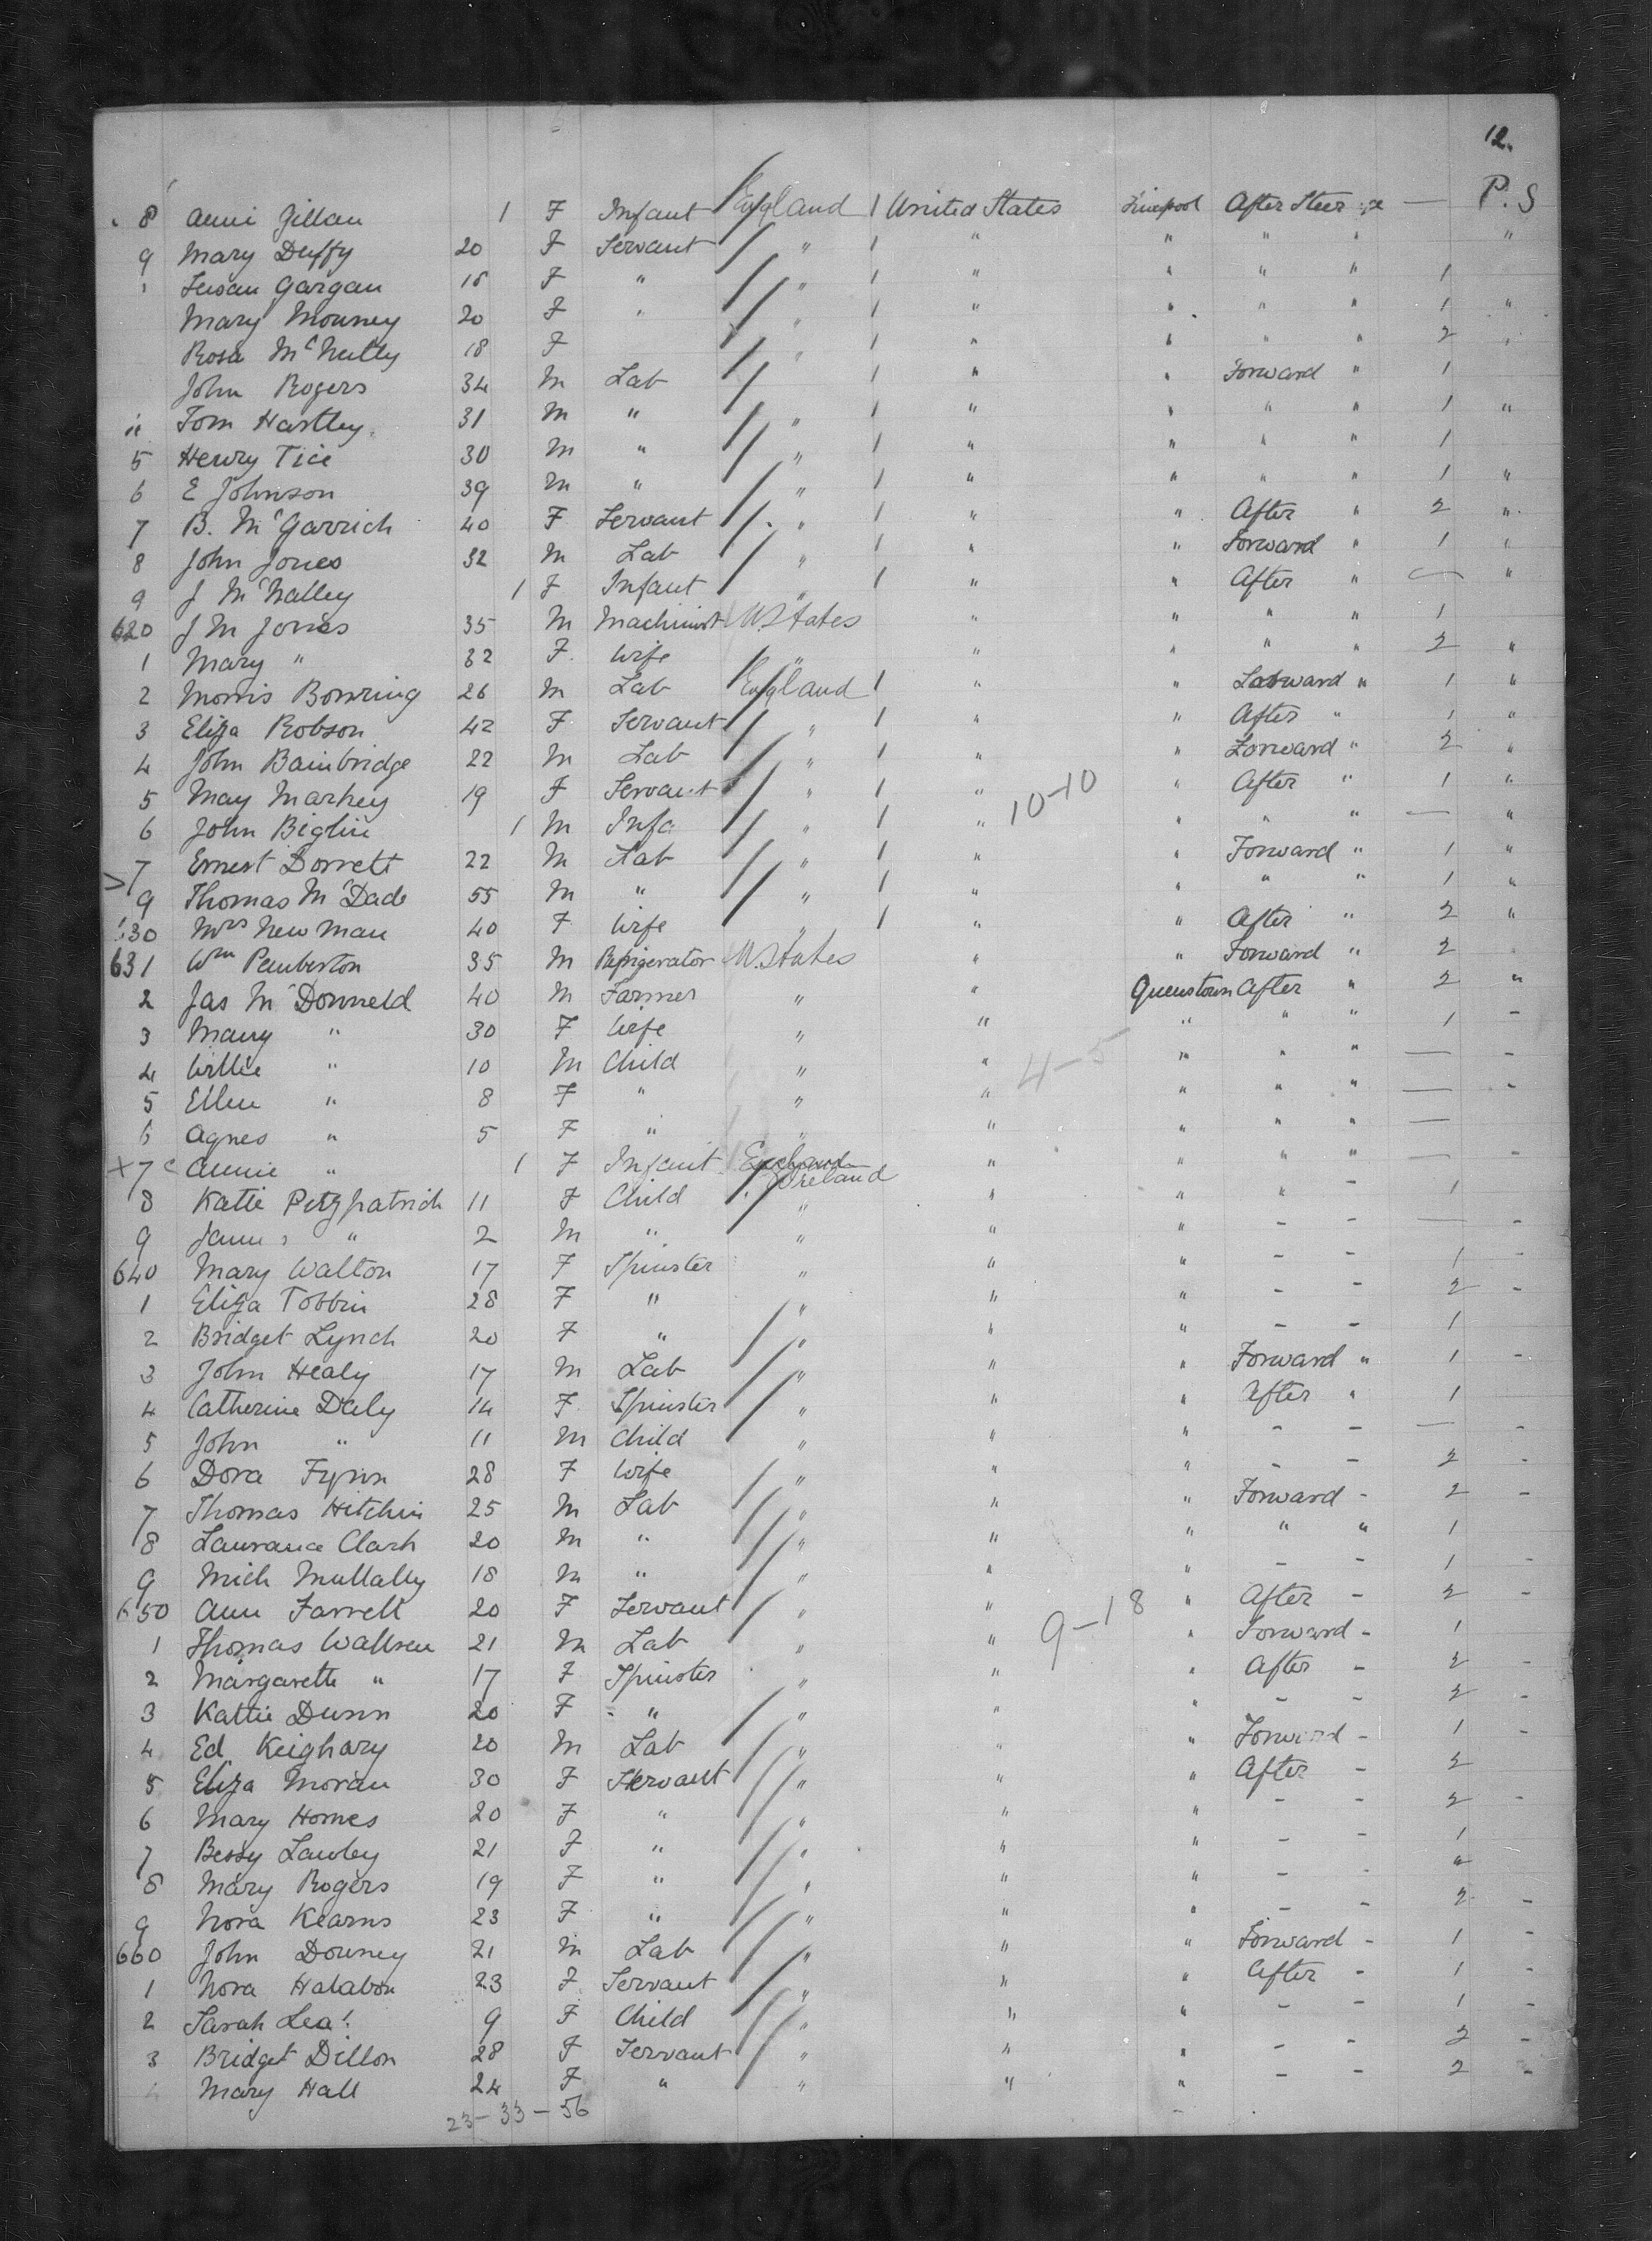 12.
P.S
8 Annie Gillan 1 F Infant England 1 United States Liverpool After Steerage —
9 Mary Duffy 20 F Servant " 1 " " " " "
Susan Gargan 18 F " " 1 " " " " 1
Mary Mooney 20 F " " 1 " " " " 1 "
Rosa McNulty 18 F " 1 " " " " 2 "
John Rogers 34 M Lab 1 " " Forward " 1
Tom Hartley 31 M " " 1 " " " " 1 "
5 Henry Tice 30 M " " 1 " " " " 1
6 E Johnson 39 M " " 1 " " " " 1 "
7 B. McGarrich 40 F Servant " 1 " " After " 2 "
8 John Jones 32 M Lab " 1 " " Forward " 1 "
9 J McNalley 1 F Infant " 1 " " After " — "
620 J M Jones 35 M Machinist U.States " " " " 1
1 Mary " 32 F. Wife " " " " " 2 "
2 Morris Bowring 26 M Lab England 1 " " Forward " 1 "
3 Eliza Robson 42 F Servant " 1 " " After " 1 "
4 John Bainbridge 22 M Lab " 1 " " Forward " 2 "
5 May Markey 19 F Servant " 1 " 10-10 " After " 1 "
6 John Biglin 1 M Infa " 1 " " " " — "
7 Ernest Dorrett 22 M Lab " 1 " " Forward " 1 "
9 Thomas McDade 55 M " " 1 " " " " 1 "
630 Mrs Newman 40 F Wife " 1 " " After " 2 "
631 Wm Pemberton 35 M Refrigerator U.States " " Forward " 2
2 Jas McDonneld 40 M Farmer " " Queenstown After " 2 "
3 Mary " 30 F Wife " " " " " 1 -
4 Willie " 10 M Child " " 4-5 " " " — -
5 Ellen " 8 F " " " " " " — -
6 Agnes " 5 F " " " " " " —
x7c Annie " 1 F Infant England " " " " — -
Ireland
8 Katie Fitzpatrick 11 F Child " " " " - 1
9 James " 2 M " " " " - - — -
640 Mary Walton 17 F Spinster " " " - - 1 -
1 Eliza Tobbin 28 F " " " " - - 2 -
2 Bridget Lynch 20 F " " " " - - 1
3 John Healy 17 M Lab " " " Forward " 1 -
4 Catherine Daly 14 F Spinster " " " After " 1
5 John " 11 M Child " " " - - — -
6 Dora Fynn 28 F Wife " " " - - 2 -
7 Thomas Hitchin 25 M Lab " " " Forward - 2 -
8 Laurance Clark 20 M " " " " " " 1
9 Mich Mullally 18 M " " " " - - 1 -
650 Ann Farrell 20 F Servant " " " After - 2 -
1 Thomas Wallren 21 M Lab " " 9-18 " Forward - 1
2 Margarette " 17 F Spinster " " " After - 2 -
3 Kattie Dunn 20 F " " " " - - 2 -
4 Ed Keighary 20 M Lab " " " Forward - 1 -
5 Eliza Moran 30 F Servant " " " After - 2
6 Mary Homes 20 F " " " " - - 2 -
7 Bessy Lawley 21 F " " " " - - 1
8 Mary Rogers 19 F " " " " - - "
9 Nora Kearns 23 F " " " " - - 2 -
660 John Downey 21 M Lab " " " Forward - 1 -
1 Nora Halabon 23 F Servant " " " After - 1 -
2 Sarah Lea 9 F Child " " " - - 1 -
3 Bridget Dillon 28 F Servant " " " - - 2 -
4 Mary Hall 24 F " " " " - - 2 -
23-33-56